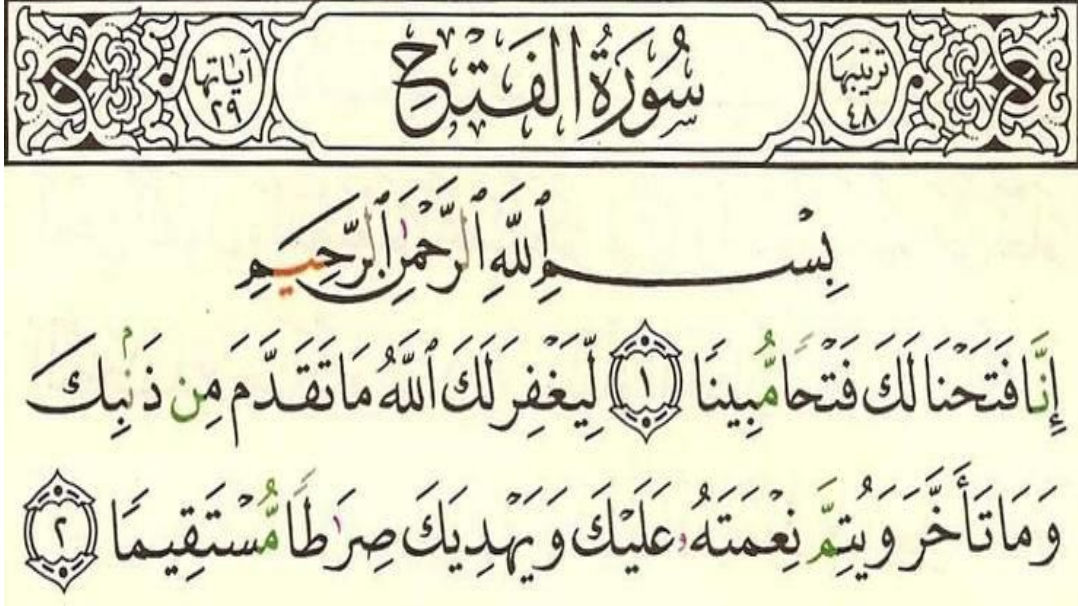 ترتيبها ٤٨
سُورَةُ الْفَتْحِ
آيَاتُهَا ٢٩
بِسْمِ ٱللَّهِ ٱلرَّحْمَٰنِ ٱلرَّحِيمِ
إِنَّا فَتَحْنَا لَكَ فَتْحًا مُّبِينًا ١ لِّيَغْفِرَ لَكَ ٱللَّهُ مَا تَقَدَّمَ مِن ذَنۢبِكَ
وَمَا تَأَخَّرَ وَيُتِمَّ نِعْمَتَهُۥ عَلَيْكَ وَيَهْدِيَكَ صِرَٰطًا مُّسْتَقِيمًا ٢